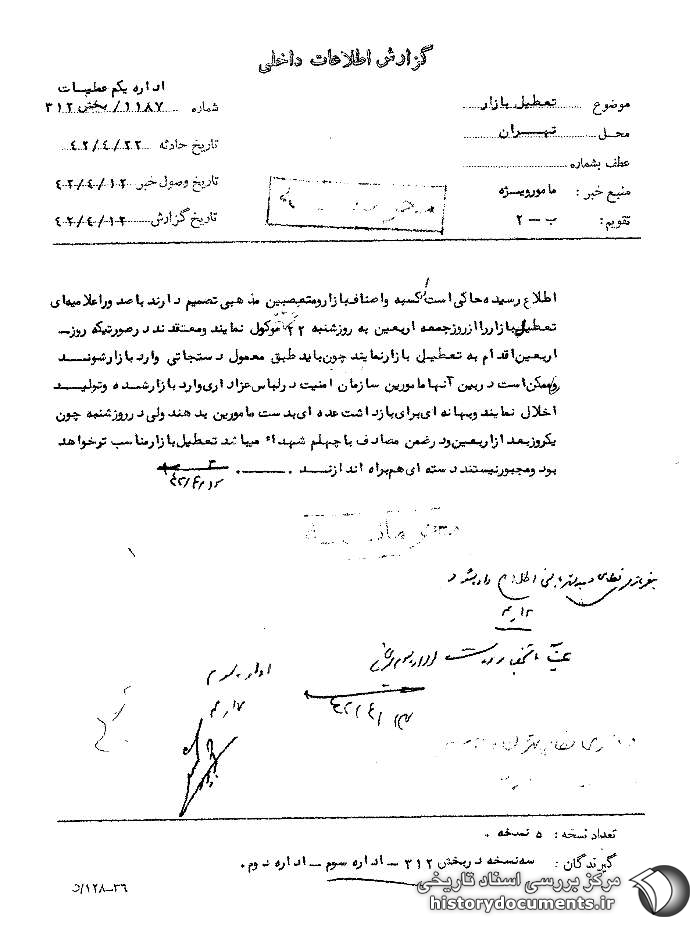 گزارش اطلاعات داخلی
اداره یکم عملیات
موضوع تعطیل بازار
شماره ۱۱۸۷/ بخش ۳۱۲
محل تهران
تاریخ حادثه ۴۲/۴/۲۲
عطف بشماره
تاریخ وصول خبر ۴۲/۴/۱۲
منبع خبر: مامورویژه
تاریخ گزارش ۴۲/۴/۱۲
تقویم: ب – ۲
اطلاع رسیده حاکی است کسبه واصناف بازار ومتعصبین مذهبی تصمیم دارند با صدور اعلامیه‌ای
تعطیل بازار را از روز جمعه اربعین به روز شنبه ۲۲ موکول نمایند ومعتقدند در صورتیکه روز
اربعین اقدام به تعطیل بازار نمایند چون باید طبق معمول دستجاتی وارد بازار شوند
وممکن است در بین آنها مامورین سازمان امنیت در لباس عزاداری وارد بازار شده وتولید
اخلال نمایند وبهانه ای برای بازداشت عده ای بدست مامورین بدهند ولی در روز شنبه چون
یکروز بعد از اربعین ودر ضمن مصادف با چهلم شهداء میباشد تعطیل بازار مناسب تر خواهد
بود ومجبور نیستند دسته ای هم براه اندازند.
۴۲/۴/۱۲
اطلاع داده شود
۴/۱۲
اداره سوم
۴/۱۷
تعداد نسخه: ۵ نسخه.
گیرندگان: سه نسخه در بخش ۳۱۲ – اداره سوم – اداره دوم.
۳۶–۱۲۸/د
مرکز بررسی اسناد تاریخی
historydocuments.ir